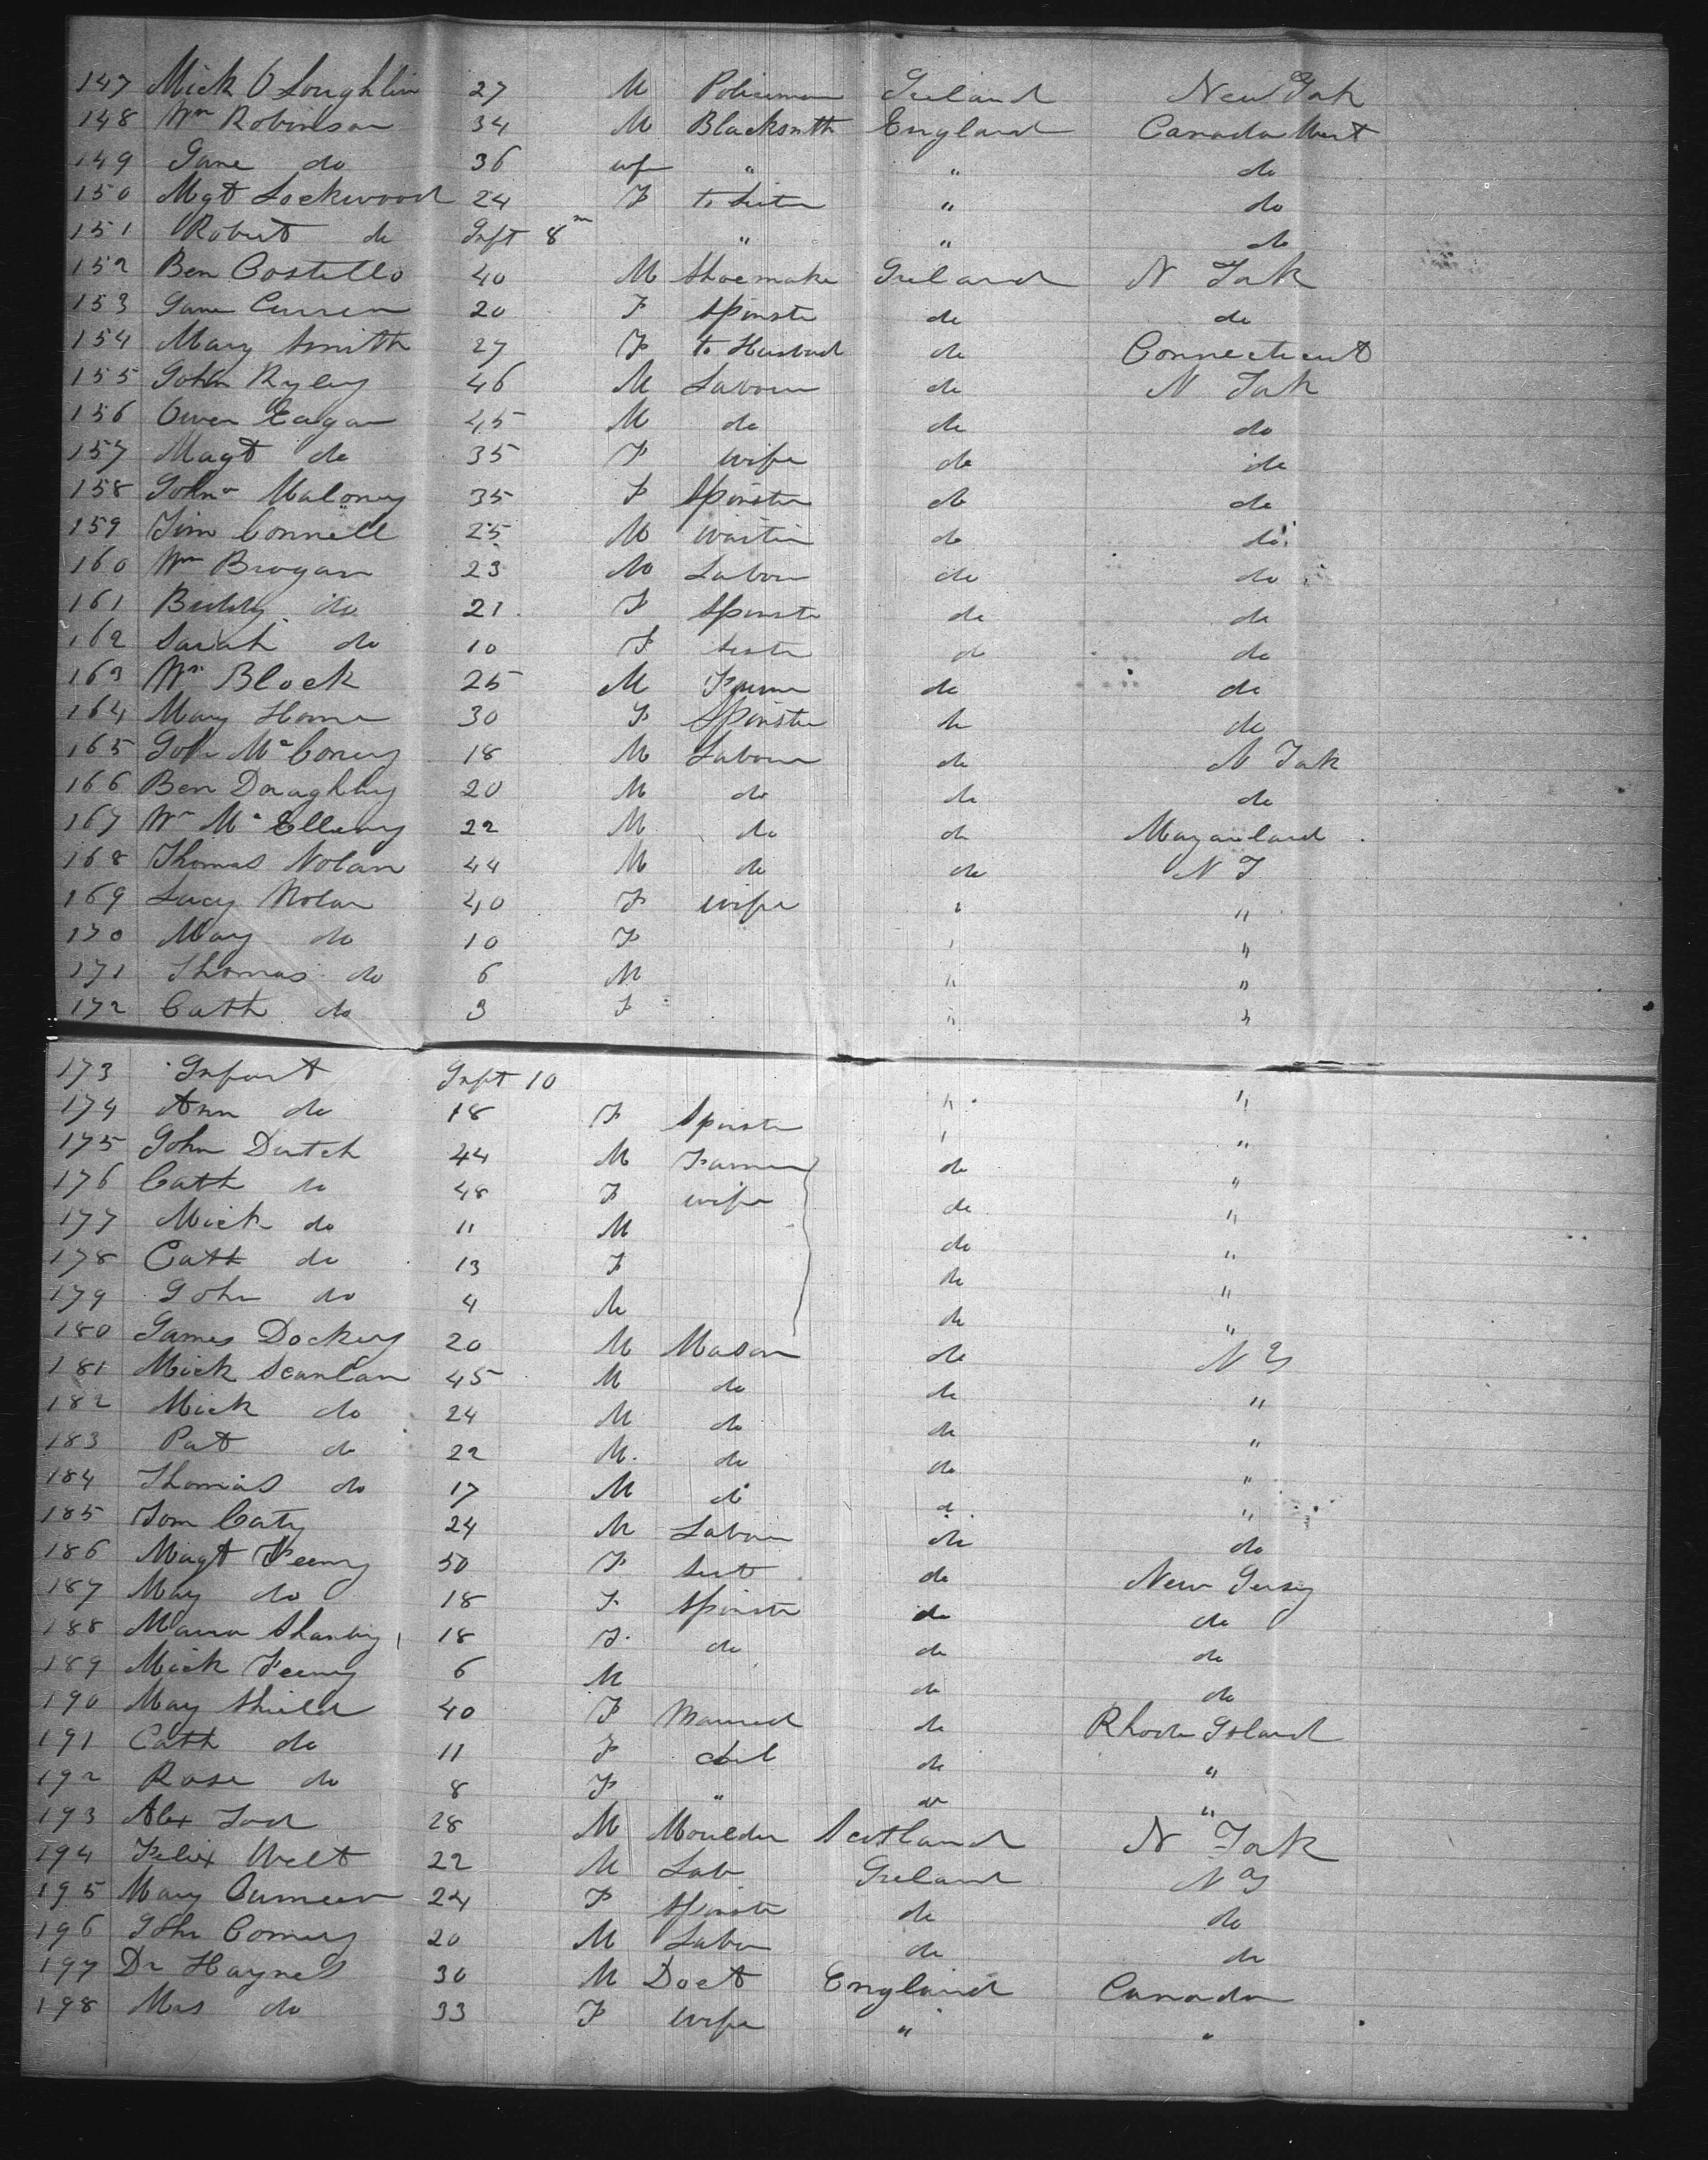 147 Mick O Loughlin 27 M Policeman Ireland New York
148 Wm Robinson 34 M Blacksmith England Canada West
149 Jane do 36 wf " " do
150 Mgt Lockwood 24 F to Sister " do
151 Robert do Inft 8 m " " do
152 Ben Costello 40 M Shoemake Ireland N York
153 Jane Curren 20 F Spinster do do
154 Mary Smith 27 F to Husband do Connecticut
155 John Ryley 46 M Labour do N York
156 Owen Eagan 45 M do do do
157 Magt do 35 F wife do do
158 Johna Maloney 35 F Spinster do do
159 Tim Connell 25 M Waiter do do
160 Wm Brogan 23 M Labour do do
161 Biddy do 21 F Spinster do do
162 Sarah do 10 F Sister do do
163 Wm Block 25 M Farmer do do
164 Mary Horne 30 F Spinster do do
165 John McConery 18 M Labour do N York
166 Ben Doughhy 20 M do do do
167 Wm Mc Elleny 22 M do do Mayanland
168 Thomas Nolan 44 M do do N Y
169 Lucy Nolan 40 F wife " "
170 Mary do 10 F " "
171 Thomas do 6 M " "
172 Cath do 3 F " "
173 Infant Inft 10 " "
174 Ann do 18 F Spinster " "
175 John Dutch 44 M Farmer do "
176 Cath do 48 F wife do "
177 Mick do 11 M do "
178 Cath do 13 F do "
179 John do 4 M do "
180 James Dockery 20 M Mason do N Y
181 Mick Scanlan 45 M do do "
182 Mick do 24 M do do "
183 Pat do 22 M do do "
184 Thomas do 17 M do do "
185 Tom Caty 24 M Labour do do
186 Magt Feeny 50 F do New Jersey
187 May do 18 F Spinster do do
188 Maria 18 F do do do
189 Mick Feeny 6 M do do
190 May Shield 40 F Married do Rhode Island
191 Cath do 11 F chil do "
192 Rose do 8 F " do "
193 Alex 28 M Moulder Scotland N York
194 Felix Welt 22 M Lab Ireland N Y
195 Mary 24 F Spinster do do
196 John Comery 20 M Labor do do
197 Dr Haynes 30 M Doct England Canada
198 Mrs do 33 F wife " "